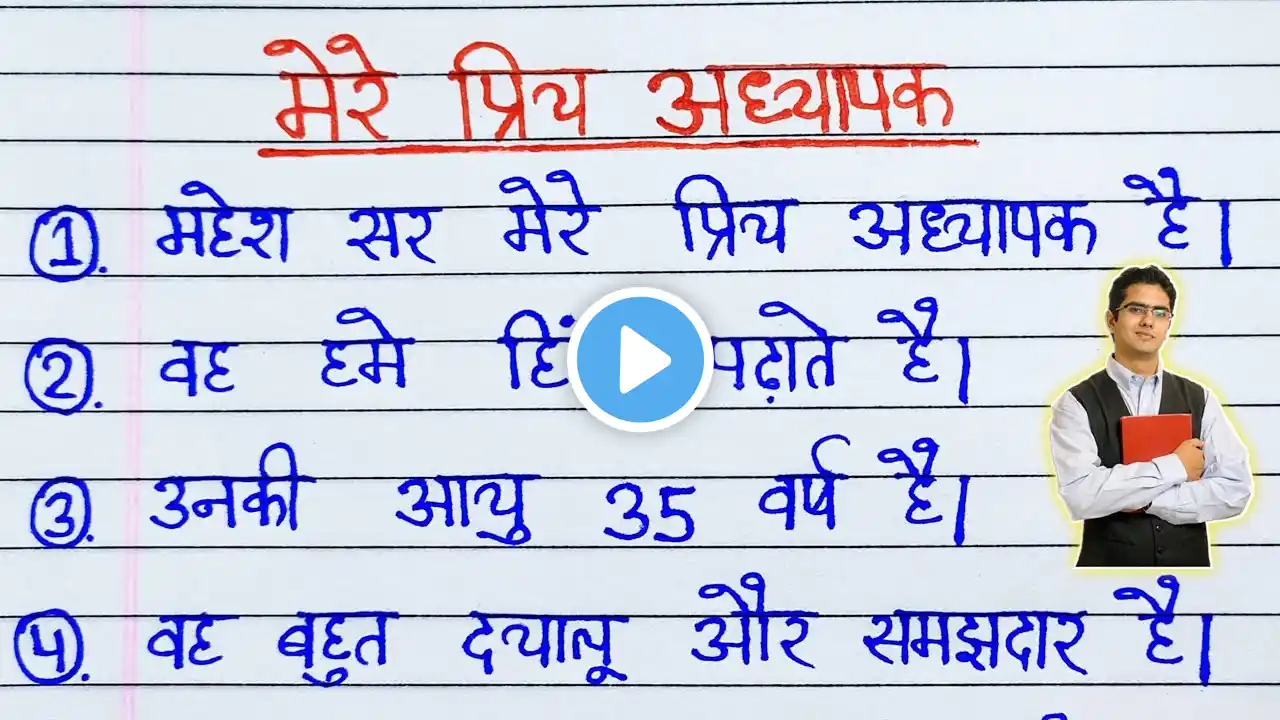 मेरे प्रिय अध्यापक
1. महेश सर मेरे प्रिय अध्यापक है।
2. वह हमे पढ़ाते है।
3. उनकी आयु 35 वर्ष है।
4. वह बहुत दयालू और समझदार है।